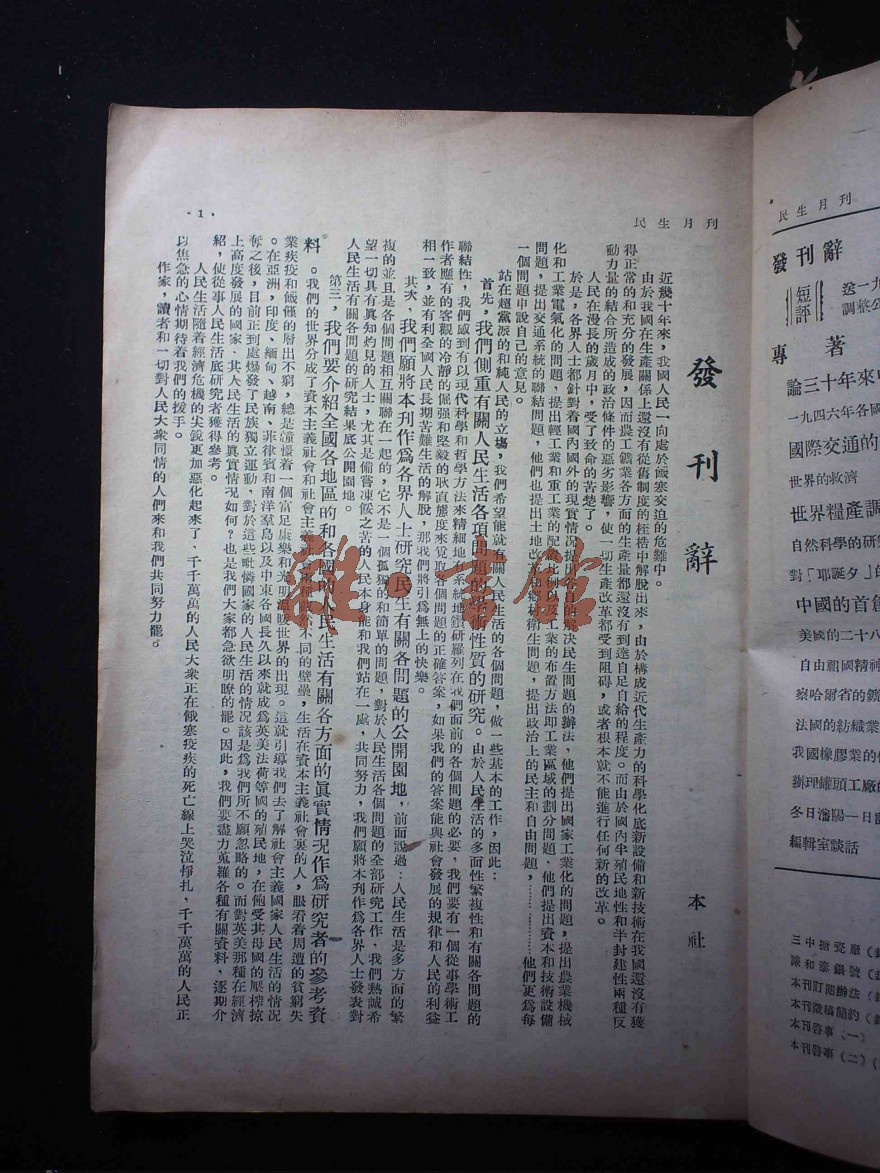 民生月刊
發刊辭
本社
近幾十年來，我國人民一向處於飢寒交迫的危難中。
由於我國在生產關係上還沒有從舊制度的桎梏中解脫出來，由於構成近代生產力的科學化底新設備和新技術在我國還沒有獲
得正常的和充分的發展，因而農工鑛業各方面的生產量都還沒有到達自足自給的程度。而由於國內半殖民地性和半封建性兩種反
動力量的結合所造成的政治條件的惡劣影響，使一切生產改革都受到阻碍，或者根本就不能進行任何新的改革。
人民在漫長的歲月中，受了致命的苦楚了。
於是，各界人士都針對着國內國外的現實情況提出各自的解決民生問題的辦法，他們提出國家工業化的問題，提出農業機械
化和工業電氣化的問題，提出輕工業和重工業的配備比例以及工業的布置方法即工業區域的劃分問題、他們提出資本和技術設備
問題，提出交通系統的聯結問題，他們也提出土地改革和 衛生問題，提出政治上的民主和自由問題，…………他們更為每
一個問題申說自己的意見。
站在超黨派的和純人民的立場，我們希望能就有關人民生活的各個問題，做一些基本的工作，因此：
首先，我們側重有關人民生活各項問題的學術性質的研究。由於人民生活的多面性繁複性和有關各問題的
聯結性，我們感到有以現代科學和哲學方法來精細地有系統地鑽研羅列在我們面前的各個問題的必要，我們要有一個從事學術工
作者應有的客觀的冷靜的倔强和堅毅的耿直態度來覓取各個問題的正確答案，如果我們的答案能與社會發展的規律和人民的利益
相一致，並有利全國人民長期苦難生活的解脫，那我們將引爲無上的快樂。
其次，我們願將本刊作爲各界人士研究民生有關各問題的公開園地，前面說過：人民生活是多方面的繁
複的並且是各個問題相互關聯在一起的，它不是一個孤獨的和簡單的問題，對於人民生活各個問題的全部研究工作，我們熱誠希
望一切具有真知灼見的人士，尤其是備嘗凍餒之苦的人民本身能和我們站在一處，共同努力，我們願將本刊作為各界人士發表對
人民生活有關各問題的研究結果底公開園地。
第三，我們要介紹全國各地區的和各國的人民生活有關各方面的眞實情况作爲研究者的參考資
料。我們的世界分成了資本主義社會和社會主義社會 不同的壁壘，生活在資本主義社會裏的人，眼看着周遭的貧窮失
業疾疫和飯僅的層出不窮，總是憧憬着一個富足康樂和光明 世界的出現。這就引導我們去了解社會主義國家人民生活的情況
。在亞洲，印度、緬甸、越南、菲律賓和南洋羣島以及中東各國長久以來就成爲英美法荷等國的殖民地，在飽受其母國的壓榨掠
奪之後，目前正到處爆發了民族獨立運動，對於這些毗憐國家的人民生活的情況該是爲我們所不願忽略的。而對英美那種在經濟
上高度發展的國家、其人民生活的眞實情況如何？也是我們大家都急欲明瞭的罷。因此，我們要盡力蒐羅各種有關資料，逐期介
紹，使從事人民生活底研究者獲得參考。
人民生活隨着經濟危機的尖銳更加惡化起來了，千千萬萬的人民大衆正在餓寒疫疾的死亡線上哭泣掙扎，千千萬萬的人民正
以焦急的心情期待着我們的援手。
作家，讀者和一切對人民大衆同情的人們來和我們共同努力罷。
·1·
民生月刊
發刊辭
短評
送一九
調整公
專著
論三十年來中
一九四六年各國
國際交通的
世界的救濟
世界糧產調
自然科學的研究
對「耶誕夕」的
中國的首創
美國的二十八
自由祖國精神
察哈爾省的鑛
法國的紡織業
我國橡膠業的
辦理罐頭工廠的
冬日瀋陽一日
編輯室談話
三中 瓷廠
謙和泰銀號
本刊訂閱辦法
本刊徵稿簡約
本刊啓事（一）
本刊啓事（二）
雜·書館